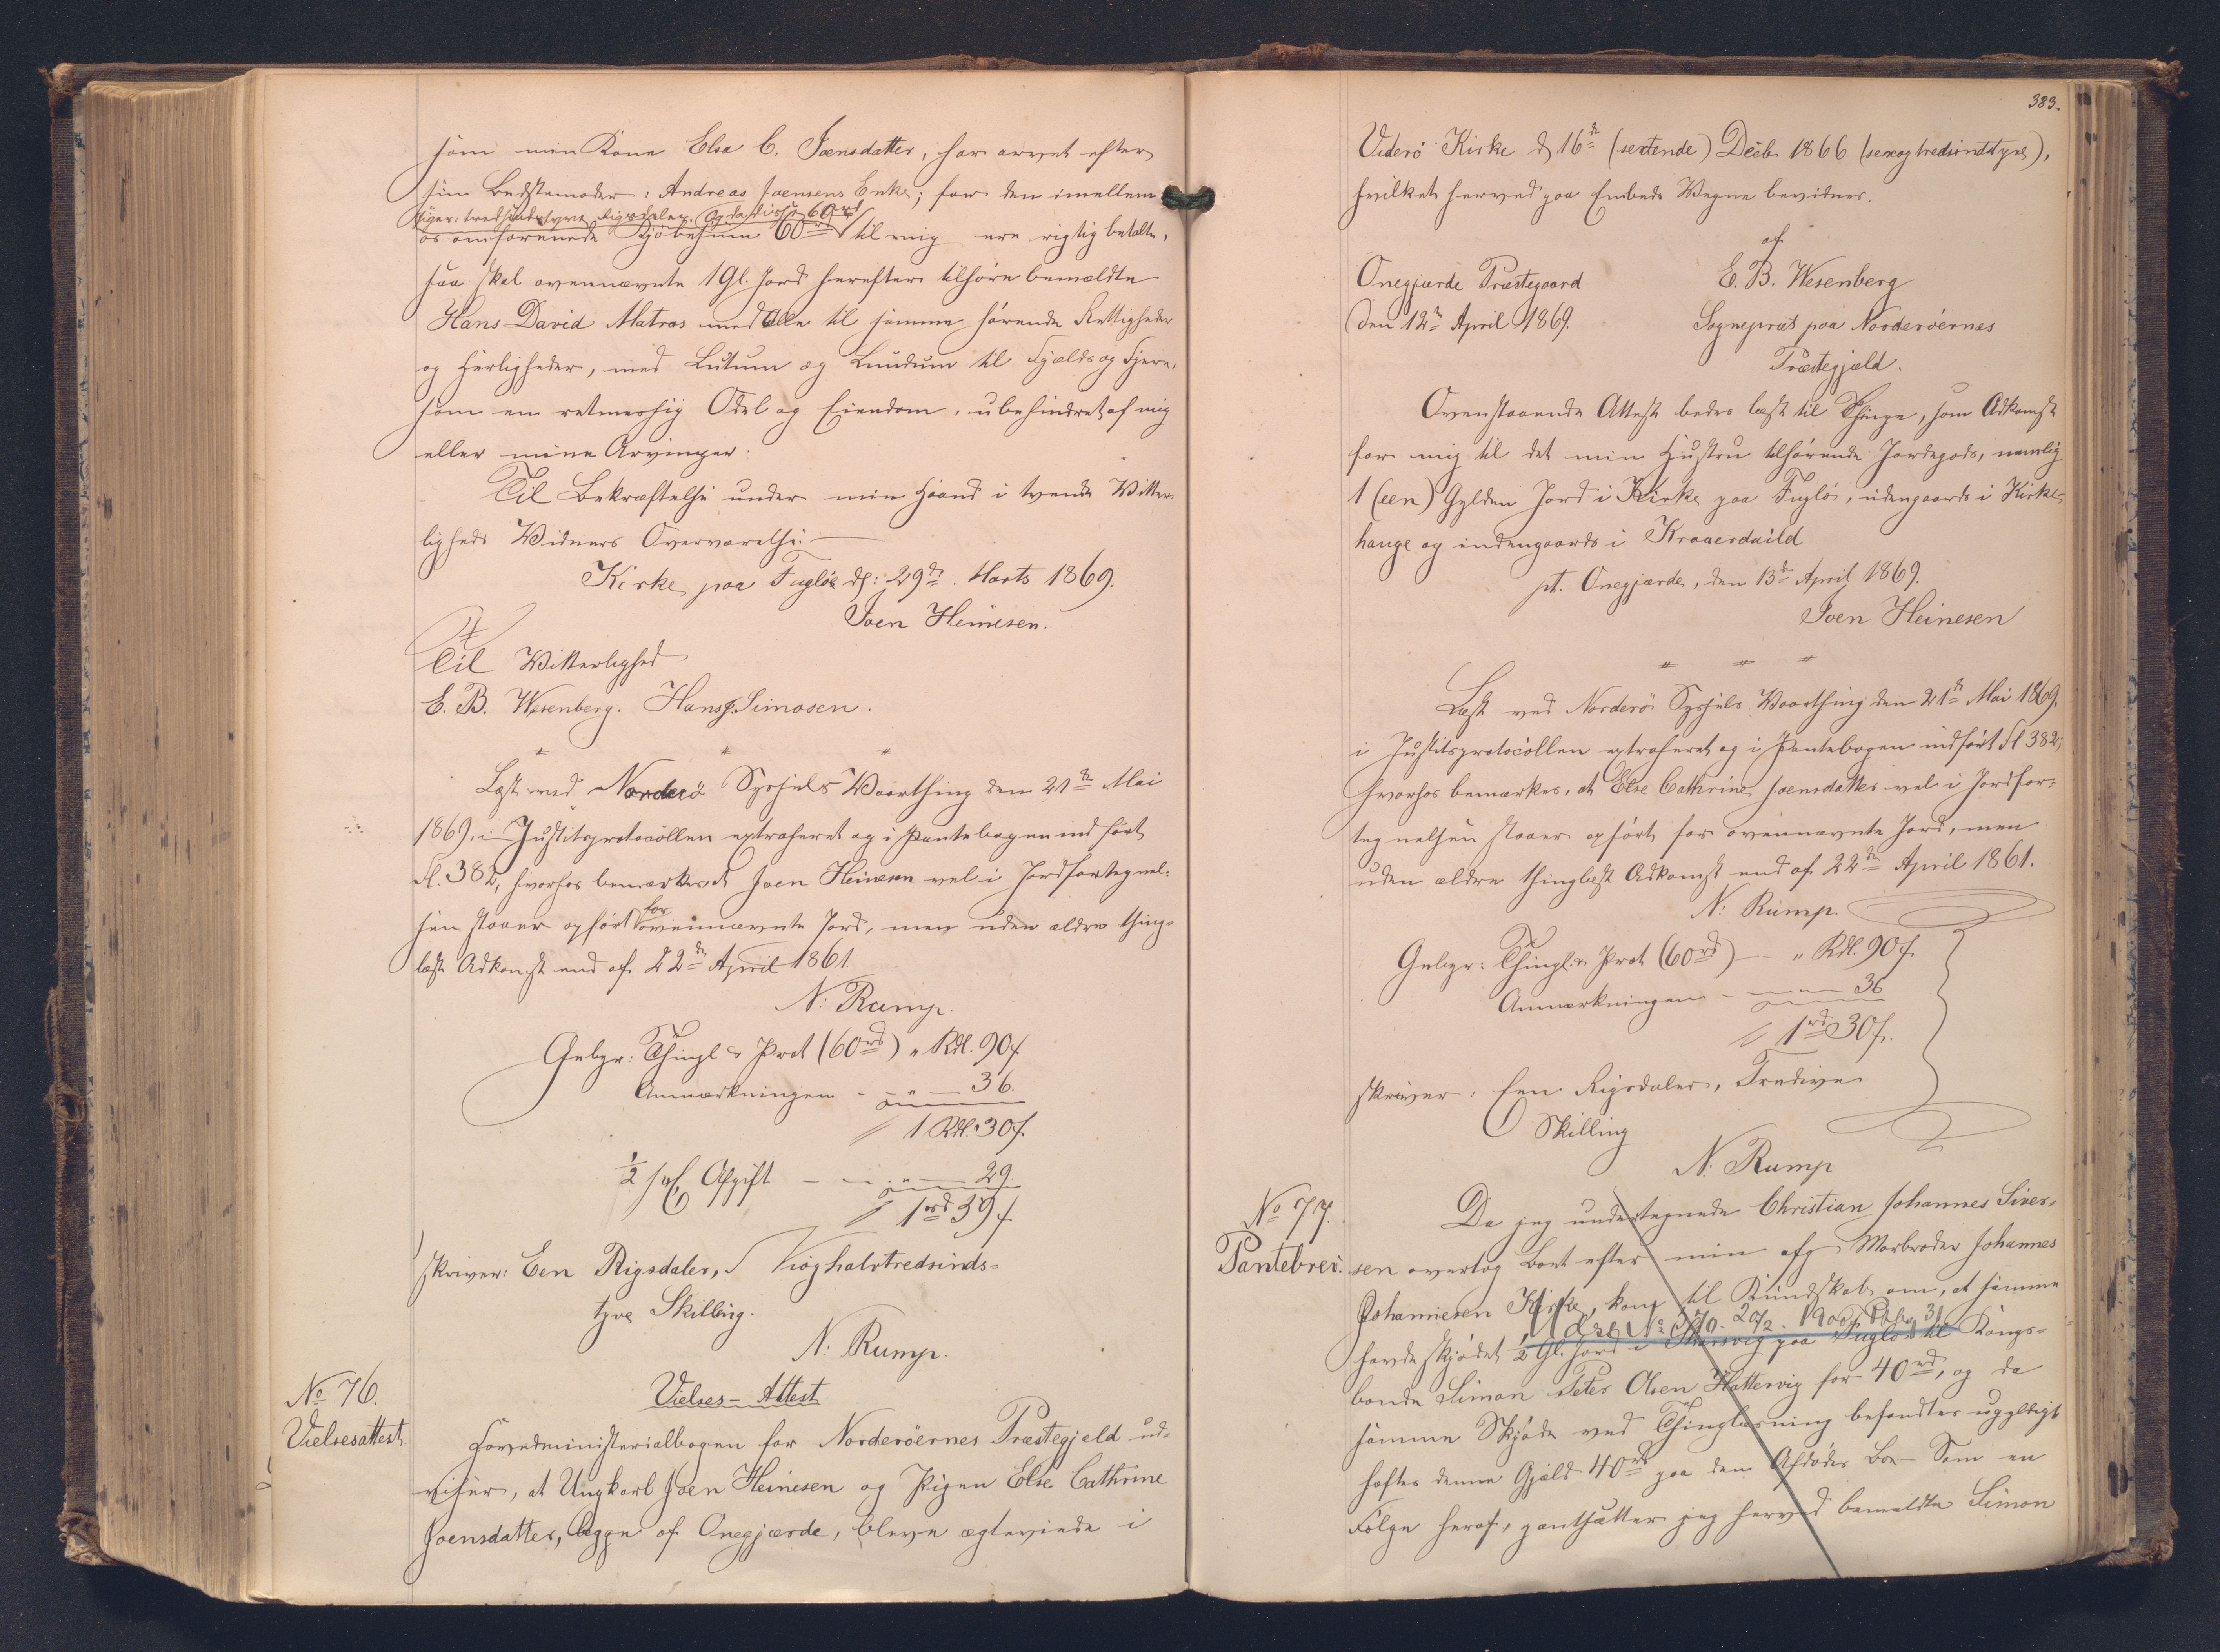 som min Kone Elsa C. Joensdatter, har arvet efter
sin Bedstemoder, Andreas Joensens Enke; for den imellem
siger: tredsindstyve Rigsdaler. Og da disse 60 rd
os omforenede Kjøbesum 60 rd til mig ere rigtig betalte,
saa skal ovennævnte 1 Gl. Jord herefter tilhøre bemældte
Hans David Matras med alle til samme hørende Rettigheder
og Herligheder, med Lutum og Lundum til Fjælds og Fjære,
som en retmessig Odel og Eiendom, ubehindret af mig
eller mine Arvinger.
Til Bekræftelse under min Haand i tvende Vitter-
ligheds Vidners Overværelse.
Kirke paa Fuglø d: 29de Marts 1869.
Joen Heinesen.
Til Vitterlighed
E. B. Wesenberg. Hans J. Simosen.
Læst ved Norderø Syssels Vaarthing den 21de Mai
1869, i Justitsprotocollen extraheret og i Pantebogen indført
Fl. 382, hvorhos bemærkes at Joen Heinesen vel i Jordfortegnel-
sen staaer opført for ovennævnte Jord, men uden ældre thing-
læst Adkomst end af 22de April 1861.
N: Rump.
Gebyr: Thingl. & Prot (60 rd) " Rdl. 90 ß
Anmærkningen - " - 36.
1 Rdl. 30 ß
1/2 pCt. Afgift - " - 29
1 rd 59 ß
skriver: Een Rigsdaler, Niog halvtredsinds-
tyve Skilling.
N: Rump.
No 76.
Vielsesattest
Vielses-Attest
Hovedministerialbogen for Norderøernes Præstegjeld ud-
viser, at Ungkarl Joen Heinesen og Pigen Else Cathrine
Joensdatter, begge af Onegjærde, bleve ægteviede i
383.
Viderø Kirke d 16de (sextende) Decb. 1866 (sexogtredsindstyve),
hvilket herved paa Embeds Vegne bevidnes.
af
Onegjærde Præstegaard E. B. Wesenberg
den 12te April 1869. Sognepræst paa Norderøernes
Præstegjæld.
Ovenstaaende Attest bedes læst til Thinge, som Adkomst
for mig til det min Hustru tilhørende Jordegods, nemlig
1 (een) Gylden Jord i Kirke paa Fuglø, udengaards i Kirke-
hauge og indengaards i Kraaerdaild
pt. Onegjærde, den 13de April 1869.
Joen Heinesen
Læst ved Norderø Syssels Vaarthing den 21de Mai 1869,
i Justitsprotocollen extraheret og i Pantebogen indført Fl 382,
hvorhos bemærkes, at Else Cathrine Joensdatter vel i Jordfor-
tegnelsen staaer opført for ovennævnte Jord, men
uden ældre thinglæst Adkomst end af 22de April 1861.
N: Rump.
Gebyr: Thingl. & Prot (60 rd) - " Rdl. 90 ß
Anmærkningen - " - 36
1 rd 30 ß.
skriver: Een Rigsdaler, Tredive
Skilling
N. Rump
No 77.
Pantebrev.
Da jeg undertegnede Christian Johannes Siver-
sen overtog Boet efter min afg Morbroder Johannes
Johannesen Kirke, kom til Kundskab om, at samme
Udsl No 370. 20/2. 1900
havde skjødet 1/2 Gl. Jord i paa Fuglø til Kongs-
bonde Simon Peter Olsen Hattervig for 40 rd, og da
samme Skjøde ved Thinglæsning befandtes ugyldigt
hæfter denne Gjæld 40 rd paa den Afdødes Bo. Som en
Følge heraf, pantsætter jeg herved bemeldte Simon